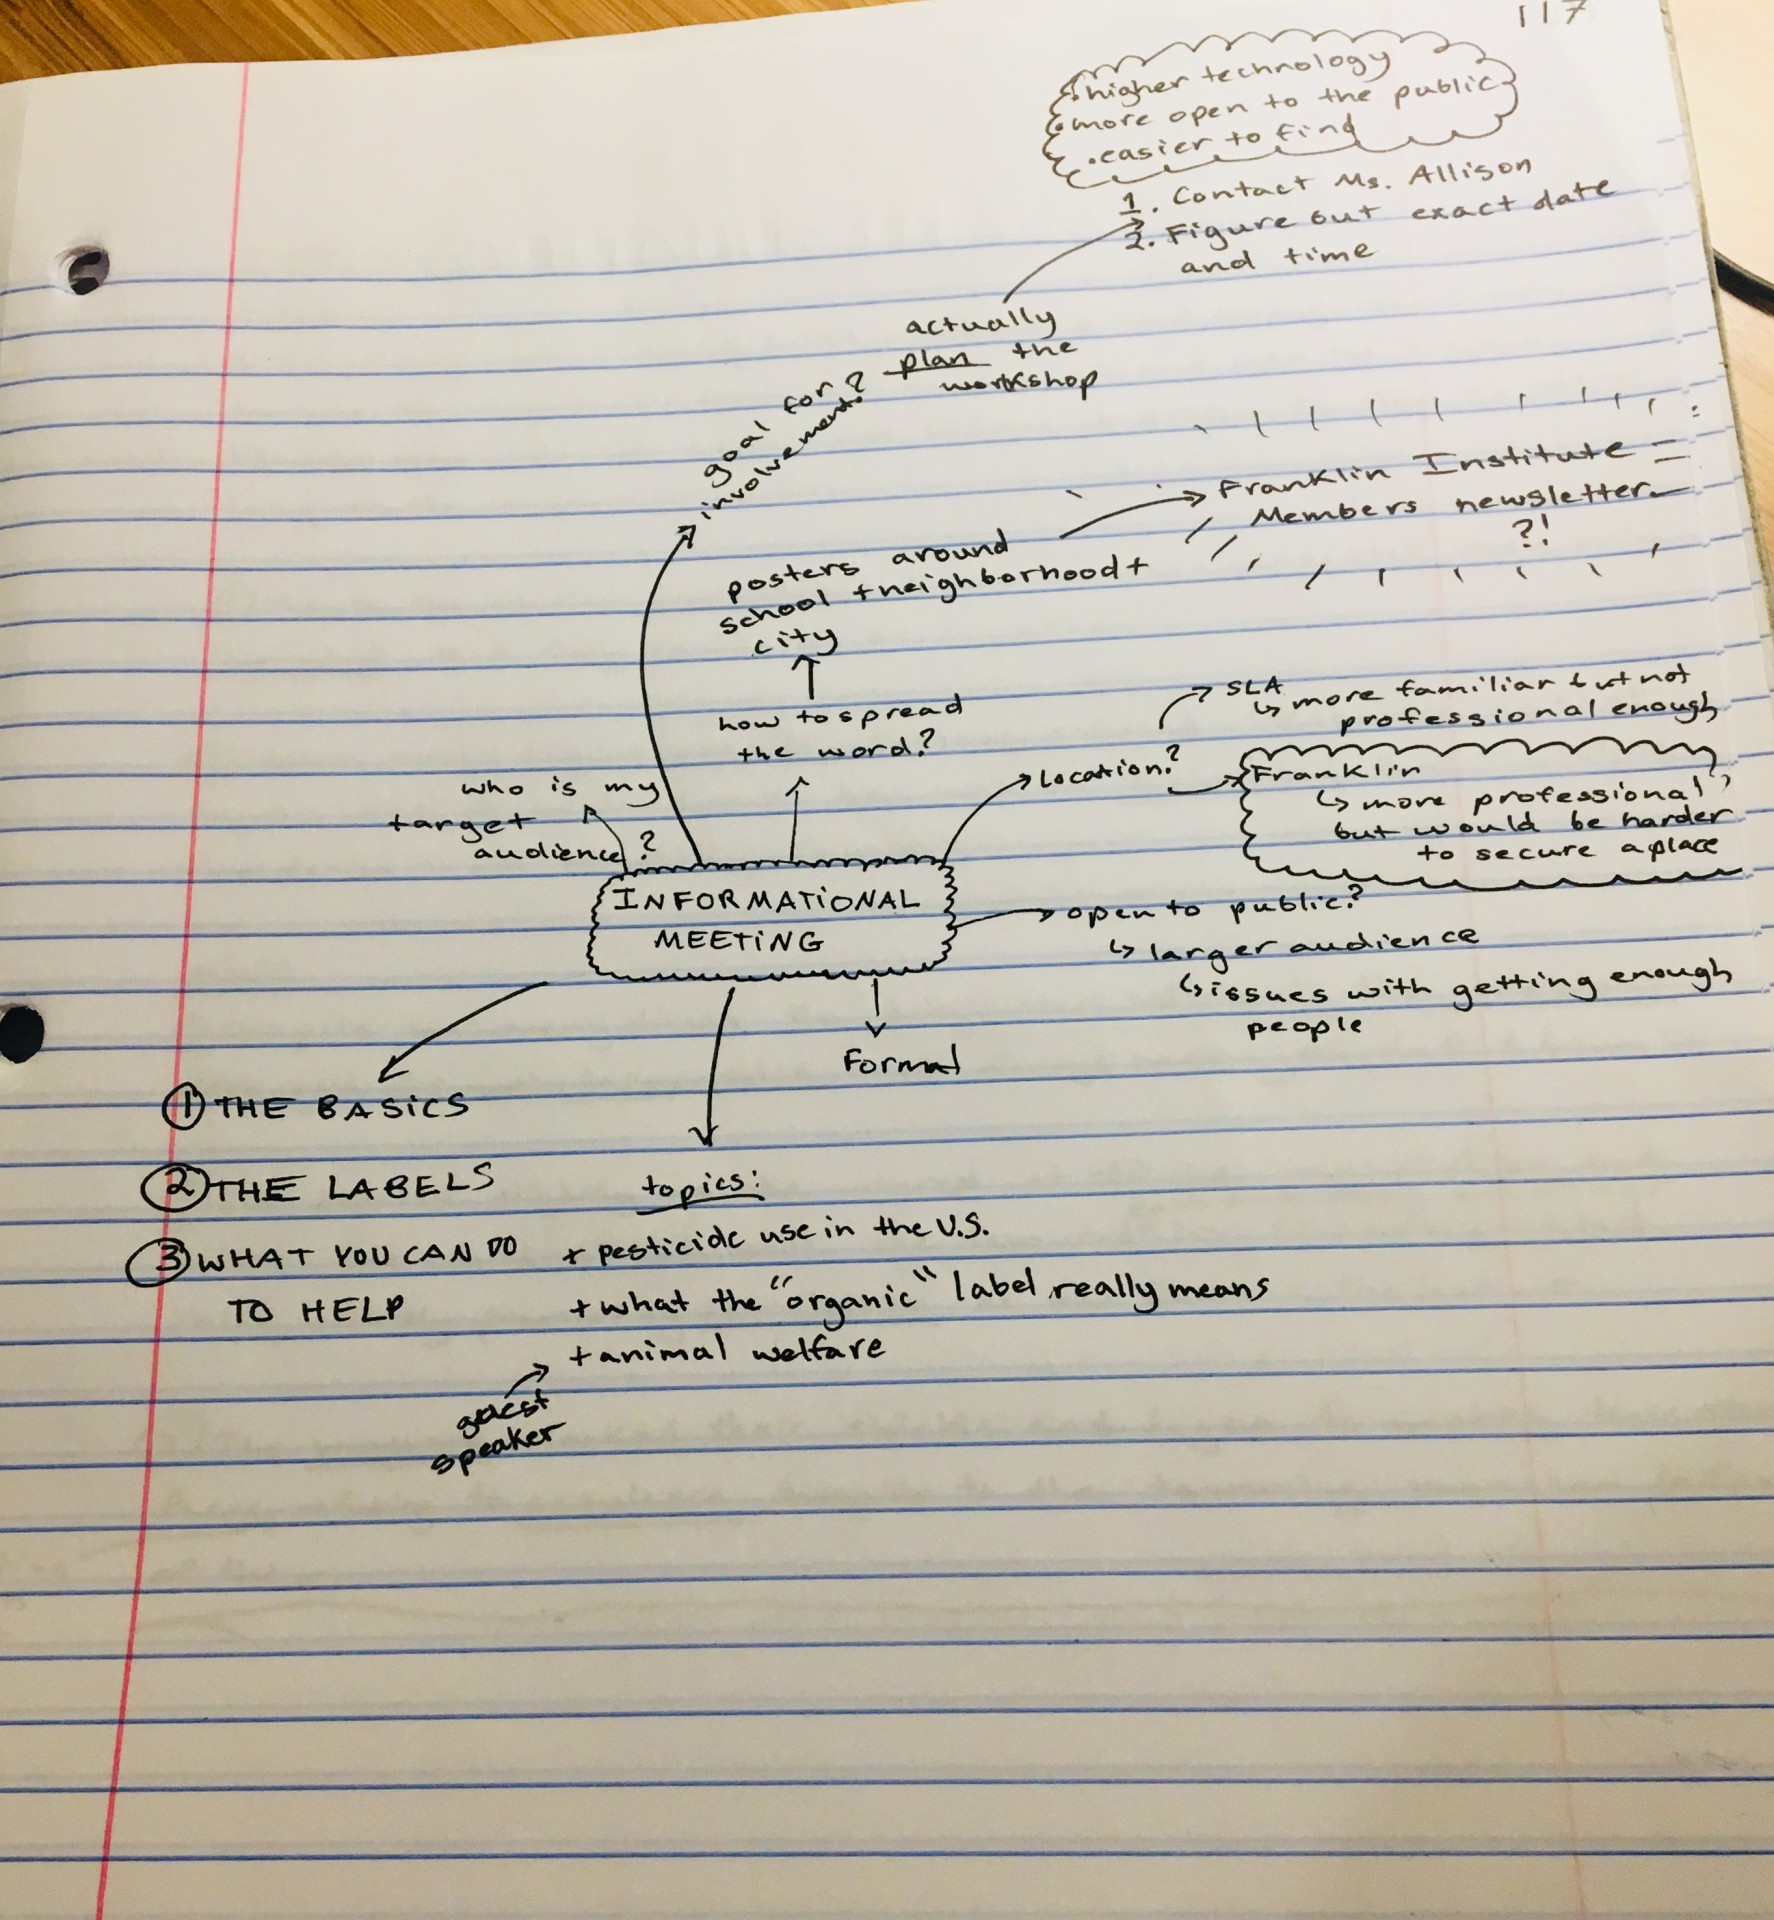 117
.higher technology
.more open to the public
.easier to find
1. Contact Ms. Allison
2. Figure out exact date
and time
actually
plan the
workshop
goal for
involvement?
Franklin Institute
Members newsletter
?!
posters around
school + neighborhood +
city
how to spread
the word?
SLA
↳ more familiar but not
professional enough
location?
Franklin
↳ more professional
but would be harder
to secure a place
who is my
target
audience?
INFORMATIONAL
MEETING
open to public?
↳ larger audience
↳ issues with getting enough
people
Format
① THE BASICS
② THE LABELS
③ WHAT YOU CAN DO
TO HELP
topics:
+ pesticide use in the U.S.
+ what the "organic" label really means
+ animal welfare
guest
speaker